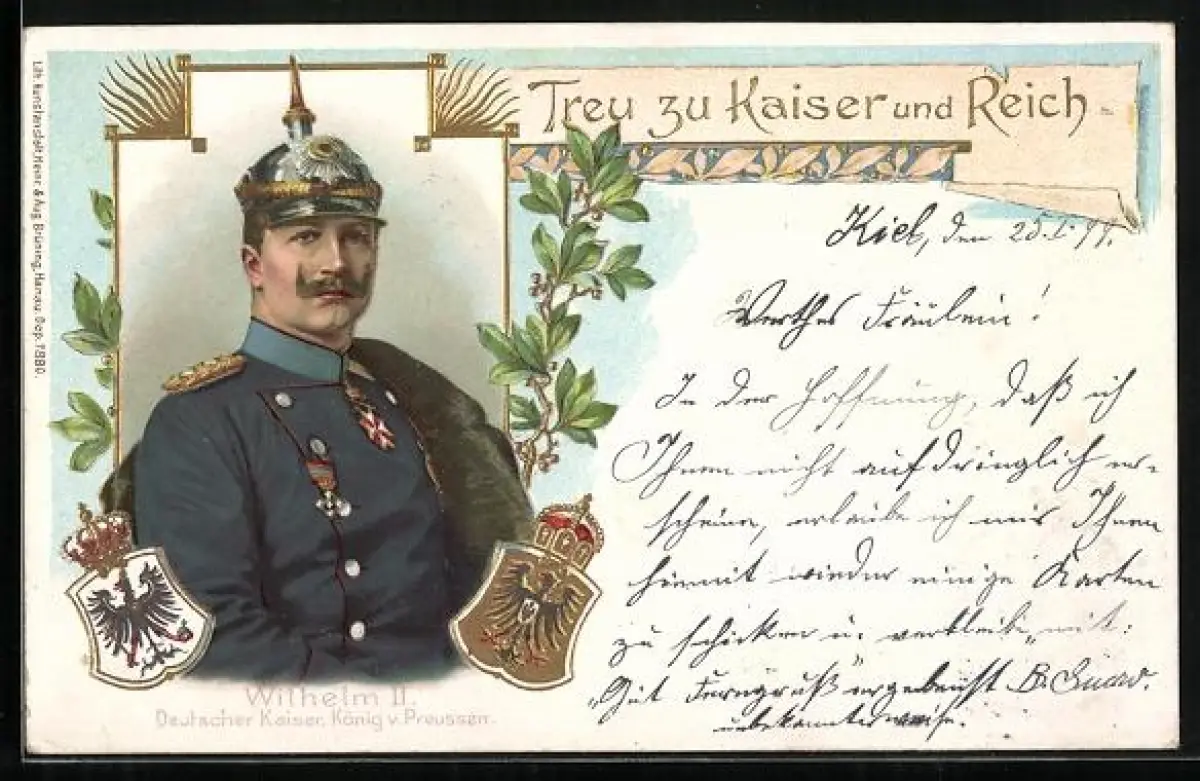 Treu zu Kaiser und Reich
Lith. Kunstanstalt, Heinr. & Aug. Brüning, Hanau. Cop. 1880.
Kiel, den 25.I.99.
Werthes Fräulein!
In der Hoffnung, daß ich
Ihnen nicht aufdringlich er-
scheine, erlaube ich mir Ihnen
hiermit wieder einige Karten
zu schicken u. verbleibe, mit:
"Gut Ferngruß" ergebenst B.
unbekannterweise.
Wilhelm II.
Deutscher Kaiser, König v. Preussen.